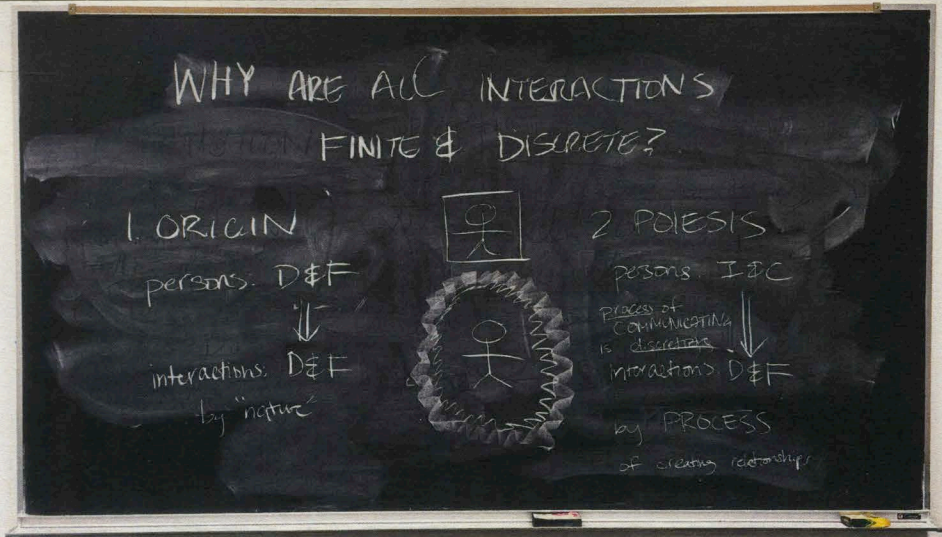 WHY ARE ALL INTERACTIONS
FINITE & DISCRETE?
1. ORIGIN
persons: D&F
interactions: D&F
by "nature"
2 POIESIS
persons: I&C
process of
COMMUNICATING
is discretizing
interactions: D&F
by PROCESS
of creating relationships